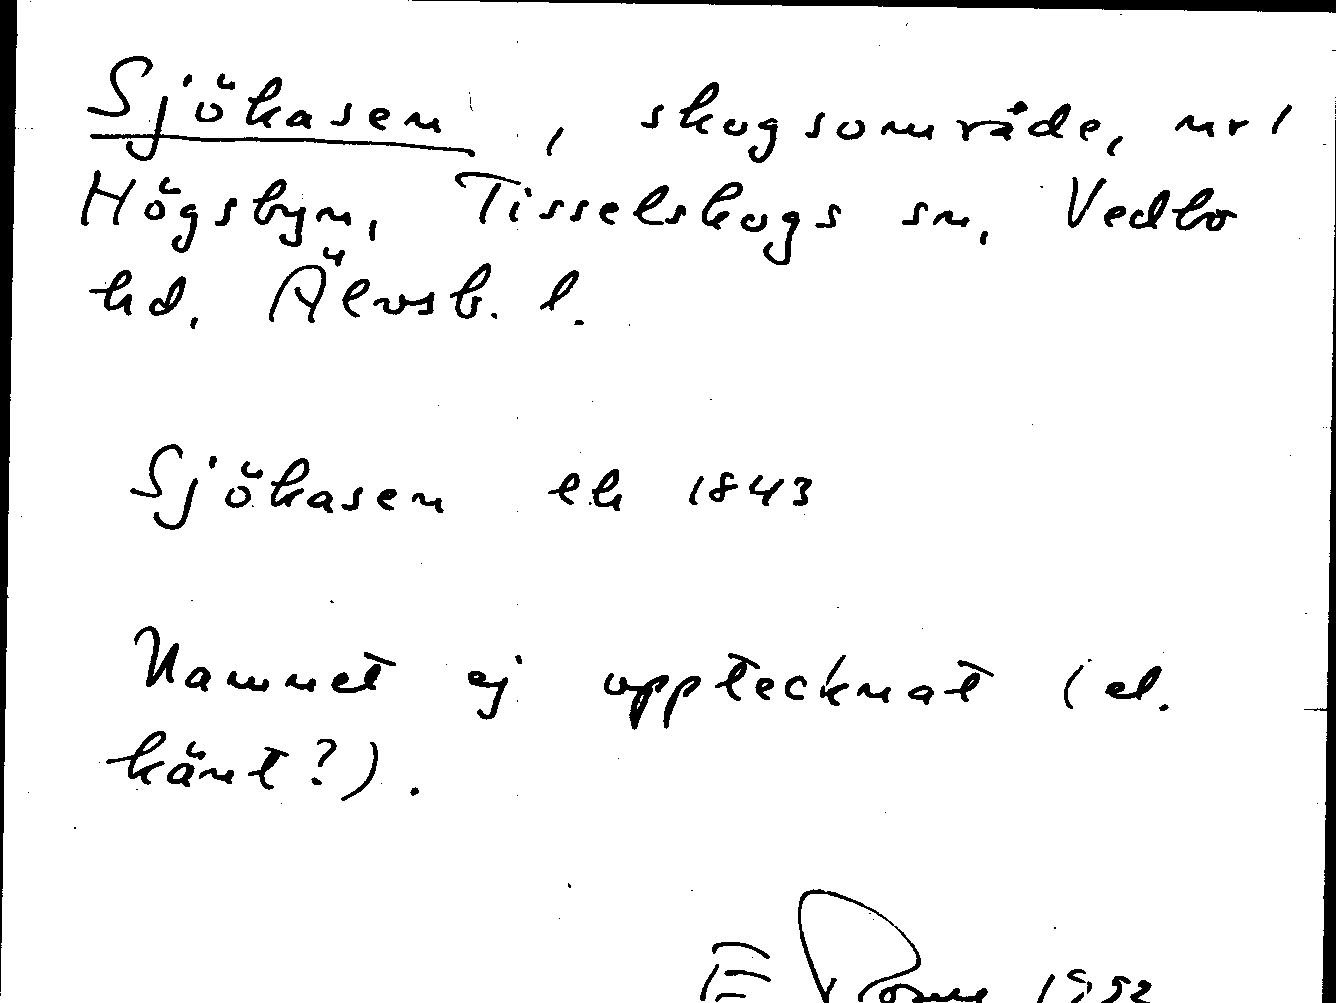 Sjökasen, skogsområde, nr 1
Högsbyn, Tisselskogs sn, Vedbo
hd, Älvsb. l.
Sjökasen ek 1843
Namnet ej upptecknat (el.
känt?).
E 1952